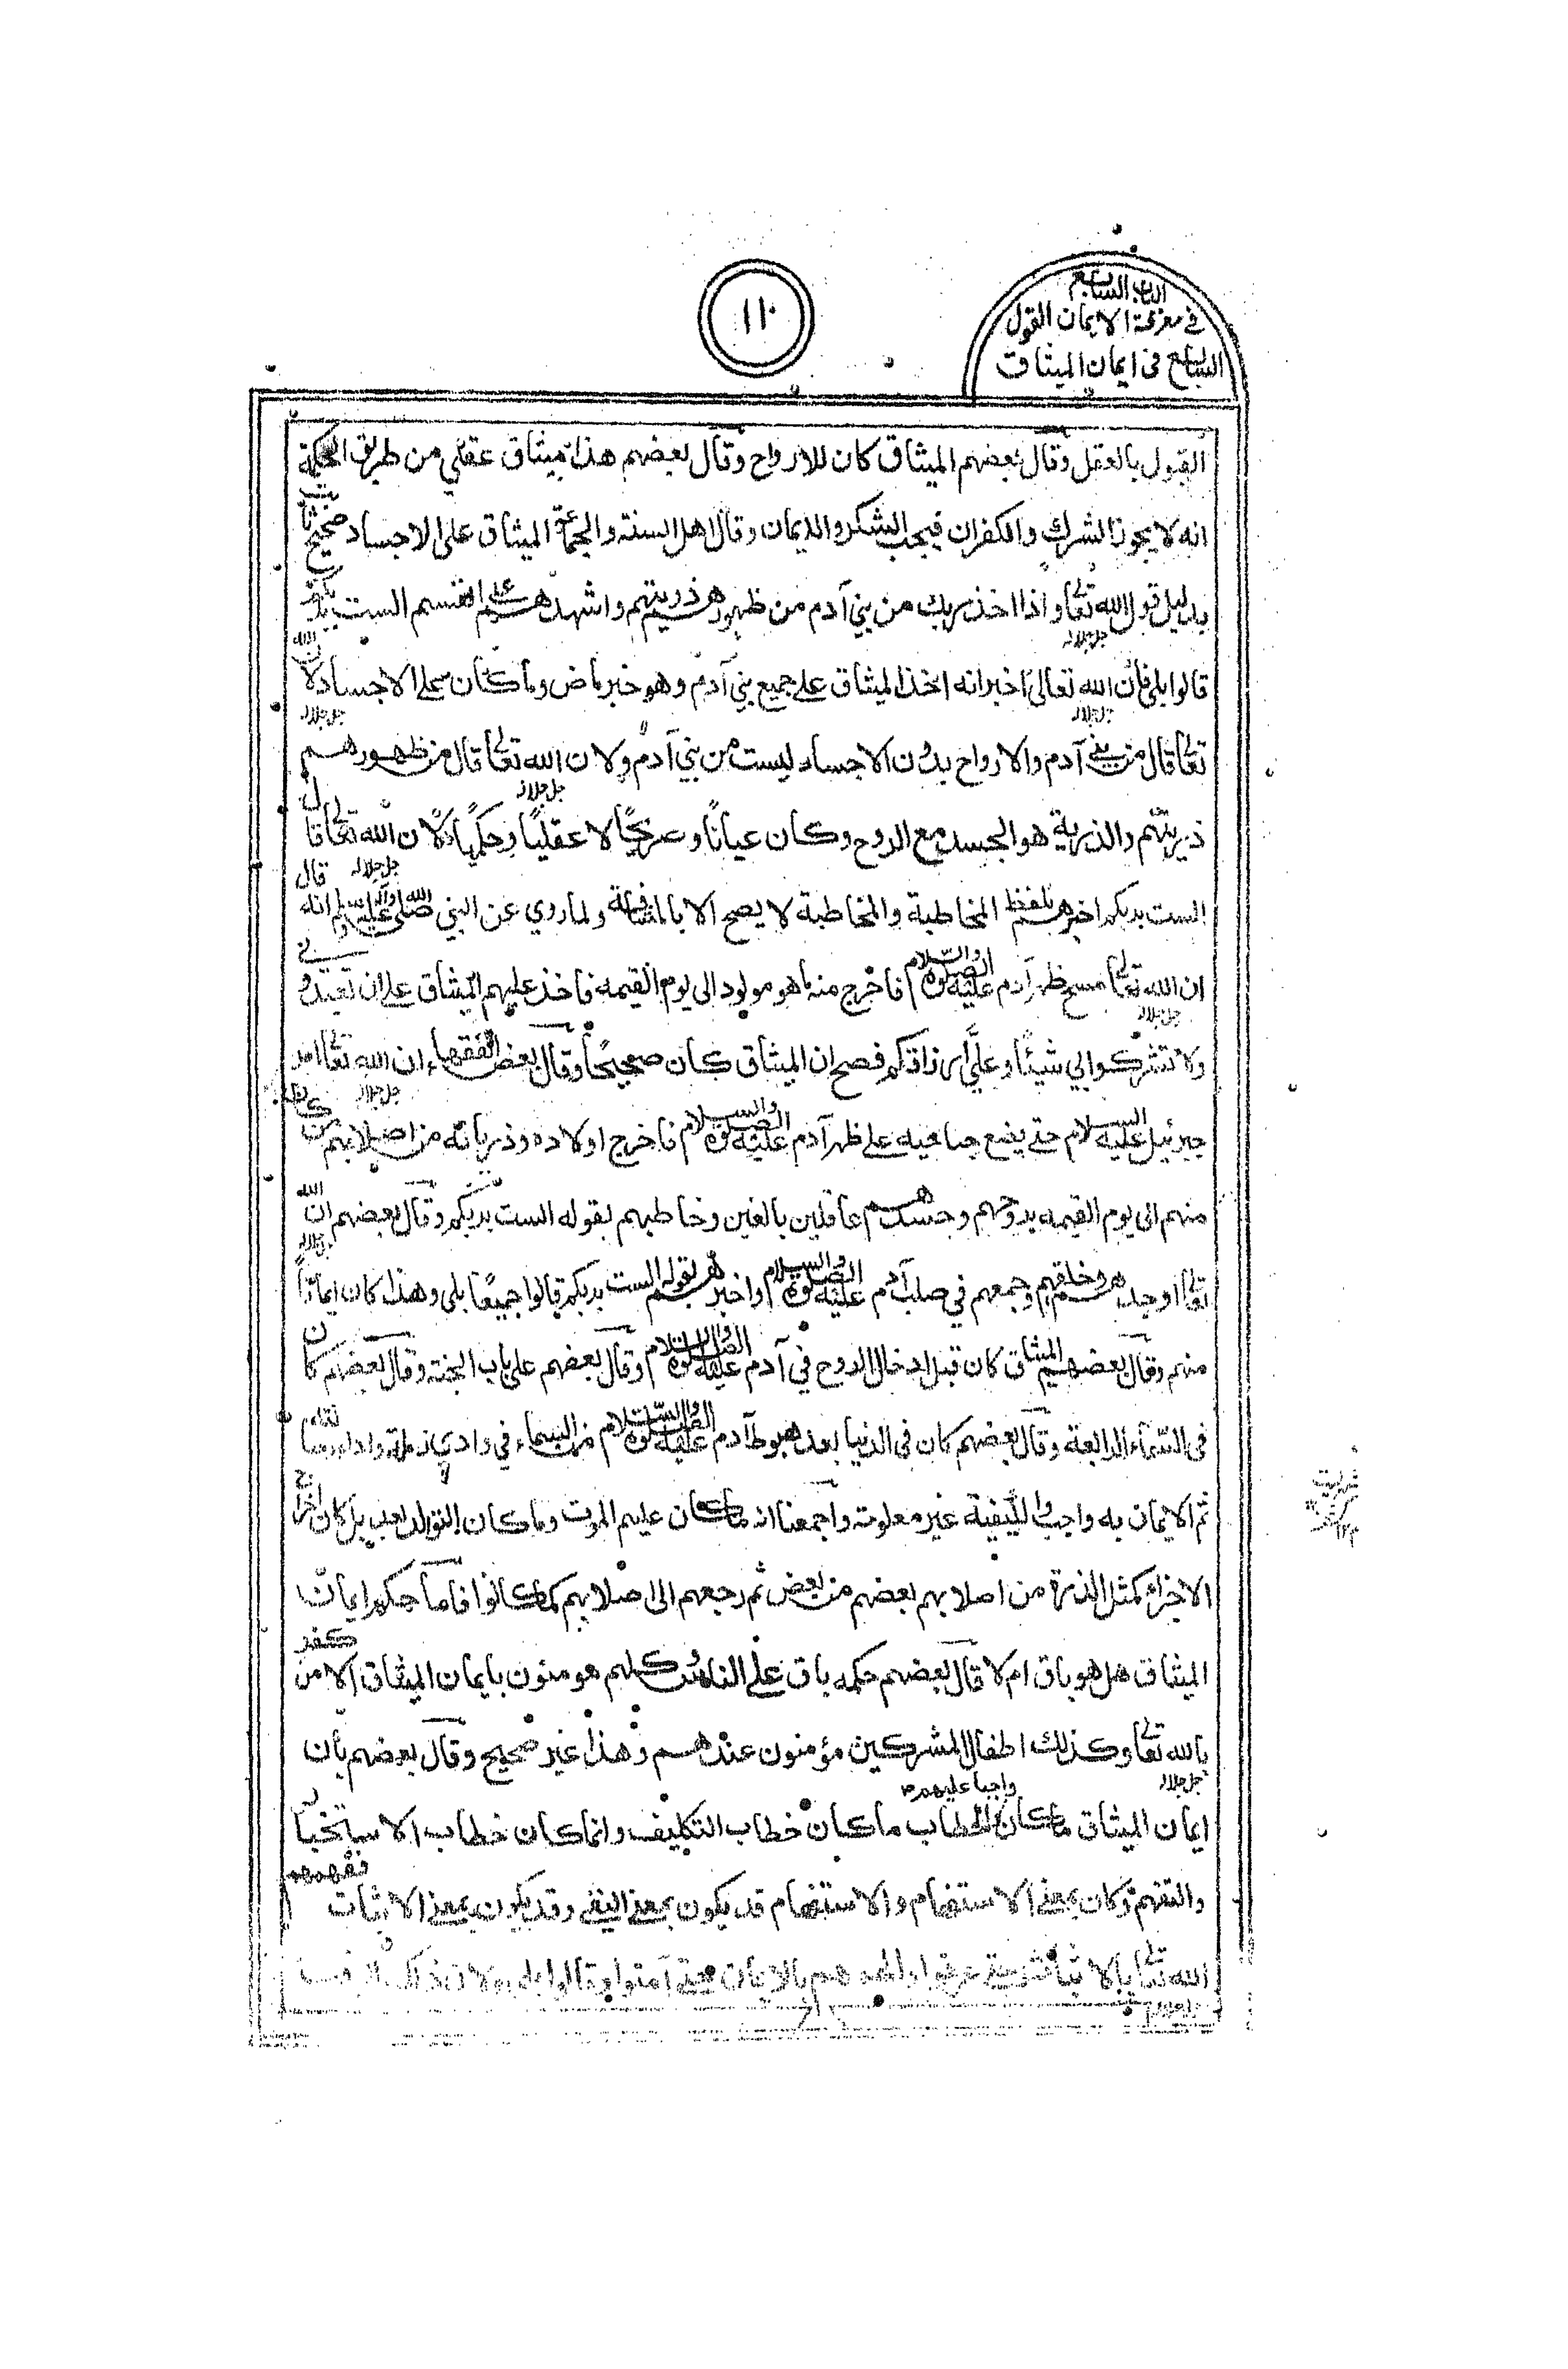 الباب السابع
في معرفة الايمان القول
السابع في ايمان الميثاق
١١٠
القبول بالعقل وقال بعضهم الميثاق كان للارواح وقال بعضهم هذا ميثاق عقلي من طريق الحكمة
انه لا يجوز الشرك والكفران فيجب الشكر والايمان وقال اهل السنة والجماعة الميثاق على الاجساد صحيح ثابت
بدليل قول الله تعالى جل جلاله واذ اخذ ربك من بني آدم من ظهورهم ذريتهم واشهدهم على انفسهم الست بربكم
قالوا بلى فان الله تعالى جل جلاله اخبر انه اخذ الميثاق على جميع بني آدم وهو خبر ماض وما كان على الاجساد لان الله جل جلاله
تعالى قال من بني آدم والارواح بدون الاجساد ليست من بني آدم ولان الله تعالى جل جلاله قال من ظهورهم
ذريتهم والذرية هو الجسد مع الروح وكان عيانا وصريحا لا عقليا وحكميا ولان الله تعالى جل جلاله قال
الست بربكم اخبرهم بلفظ المخاطبة والمخاطبة لا يصح الا بالمشافهة ولما روي عن النبي صلى الله عليه وآله وسلم انه قال
ان الله تعالى جل جلاله مسح ظهر آدم عليه الصلوة والسلام فاخرج منه ما هو مولود الى يوم القيمه فاخذ عليهم الميثاق على ان تعبدوني
ولا تشركوا بي شيئا وعلي ارزاقكم فصح ان الميثاق كان صحيحا وقال بعض الفقهاء ان الله تعالى جل جلاله امر
جبرئيل عليه السلام حتى يضع جناحيه على ظهر آدم عليه الصلوة والسلام فاخرج اولاده وذرياته من اصلابهم من كان
منهم الى يوم القيمه بروحهم وجسدهم عاقلين بالغين وخاطبهم بقوله الست بربكم وقال بعضهم ان الله جل جلاله
تعالى اوجدهم وخلقهم وجمعهم في صلب آدم عليه الصلوة والسلام واخبرهم بقوله الست بربكم قالوا جميعا بلى وهذا كان ايمانا
منهم وقال بعضهم الميثاق كان قبل ادخال الروح في آدم عليه الصلوة والسلام وقال بعضهم على باب الجنة وقال بعضهم كان
في السماء الرابعة وقال بعضهم كان في الدنيا بعد هبوط آدم عليه الصلوة والسلام من السماء في وادي
ثم الايمان به واجب والكيفية غير معلومة واجمعنا انه ما كان عليهم الموت وما كان التولد بعد بل كان اخراج
الاجزاء كمثل الذرة من اصلابهم بعضهم من بعض ثم رجعهم الى اصلابهم كما كانوا فاما حكم ايمان
الميثاق هل هو باق ام لا قال بعضهم حكمه باق على الناس كلهم مومنون بايمان الميثاق الا من كفر
بالله تعالى جل جلاله وكذلك اطفال المشركين مؤمنون عندهم وهذا غير صحيح وقال بعضهم بأن
ايمان الميثاق ما كان واجبا عليهم الخطاب ما كان خطاب التكليف وانما كان خطاب الاستخبار
والتفهم وكان بمعنى الاستفهام والاستفهام قد يكون بمعنى النفي وقد يكون بمعنى الاثبات ففهمهم
الله تعالى بالاثبات حتى عرفوا هم بالايمان حتى آمنوا وقالوا بلى ولان ذلك